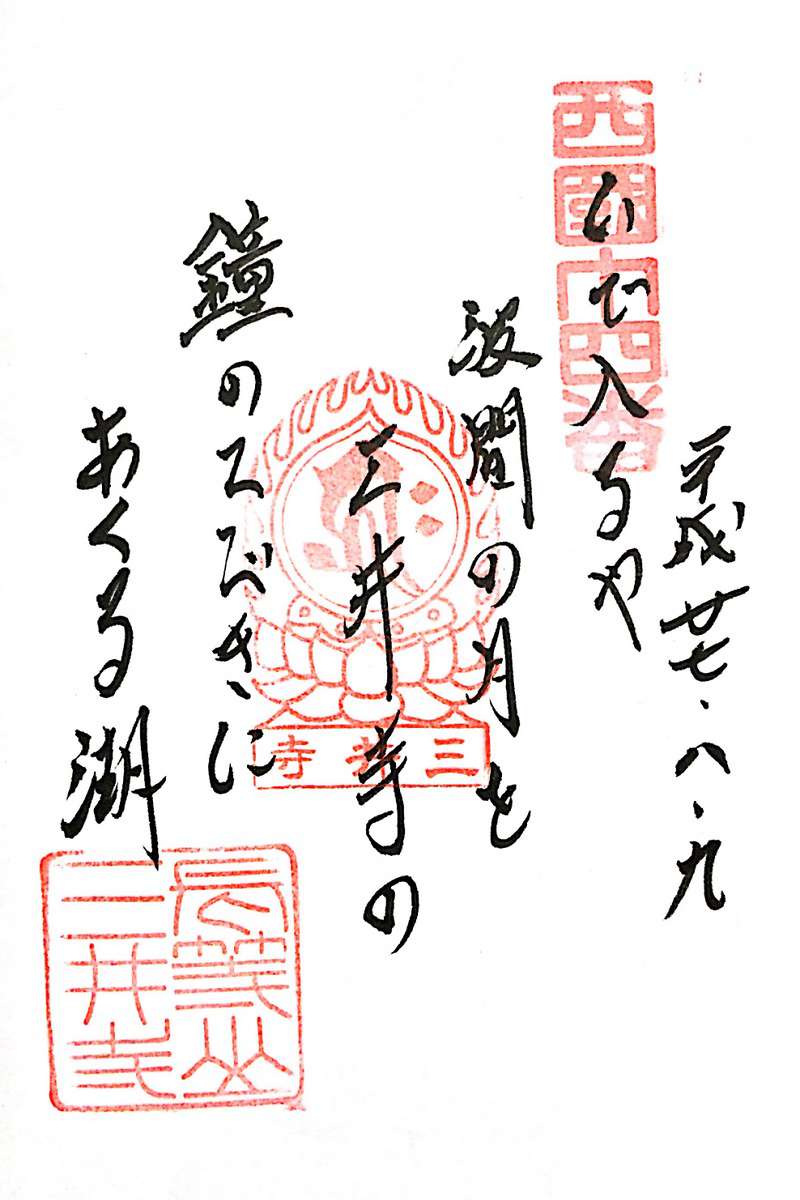 平成廿七・八・九
西國十四番
いで入るや
波間の月を
三井寺の
鐘のひびきに
あくる湖
三井寺
長等山
三井寺